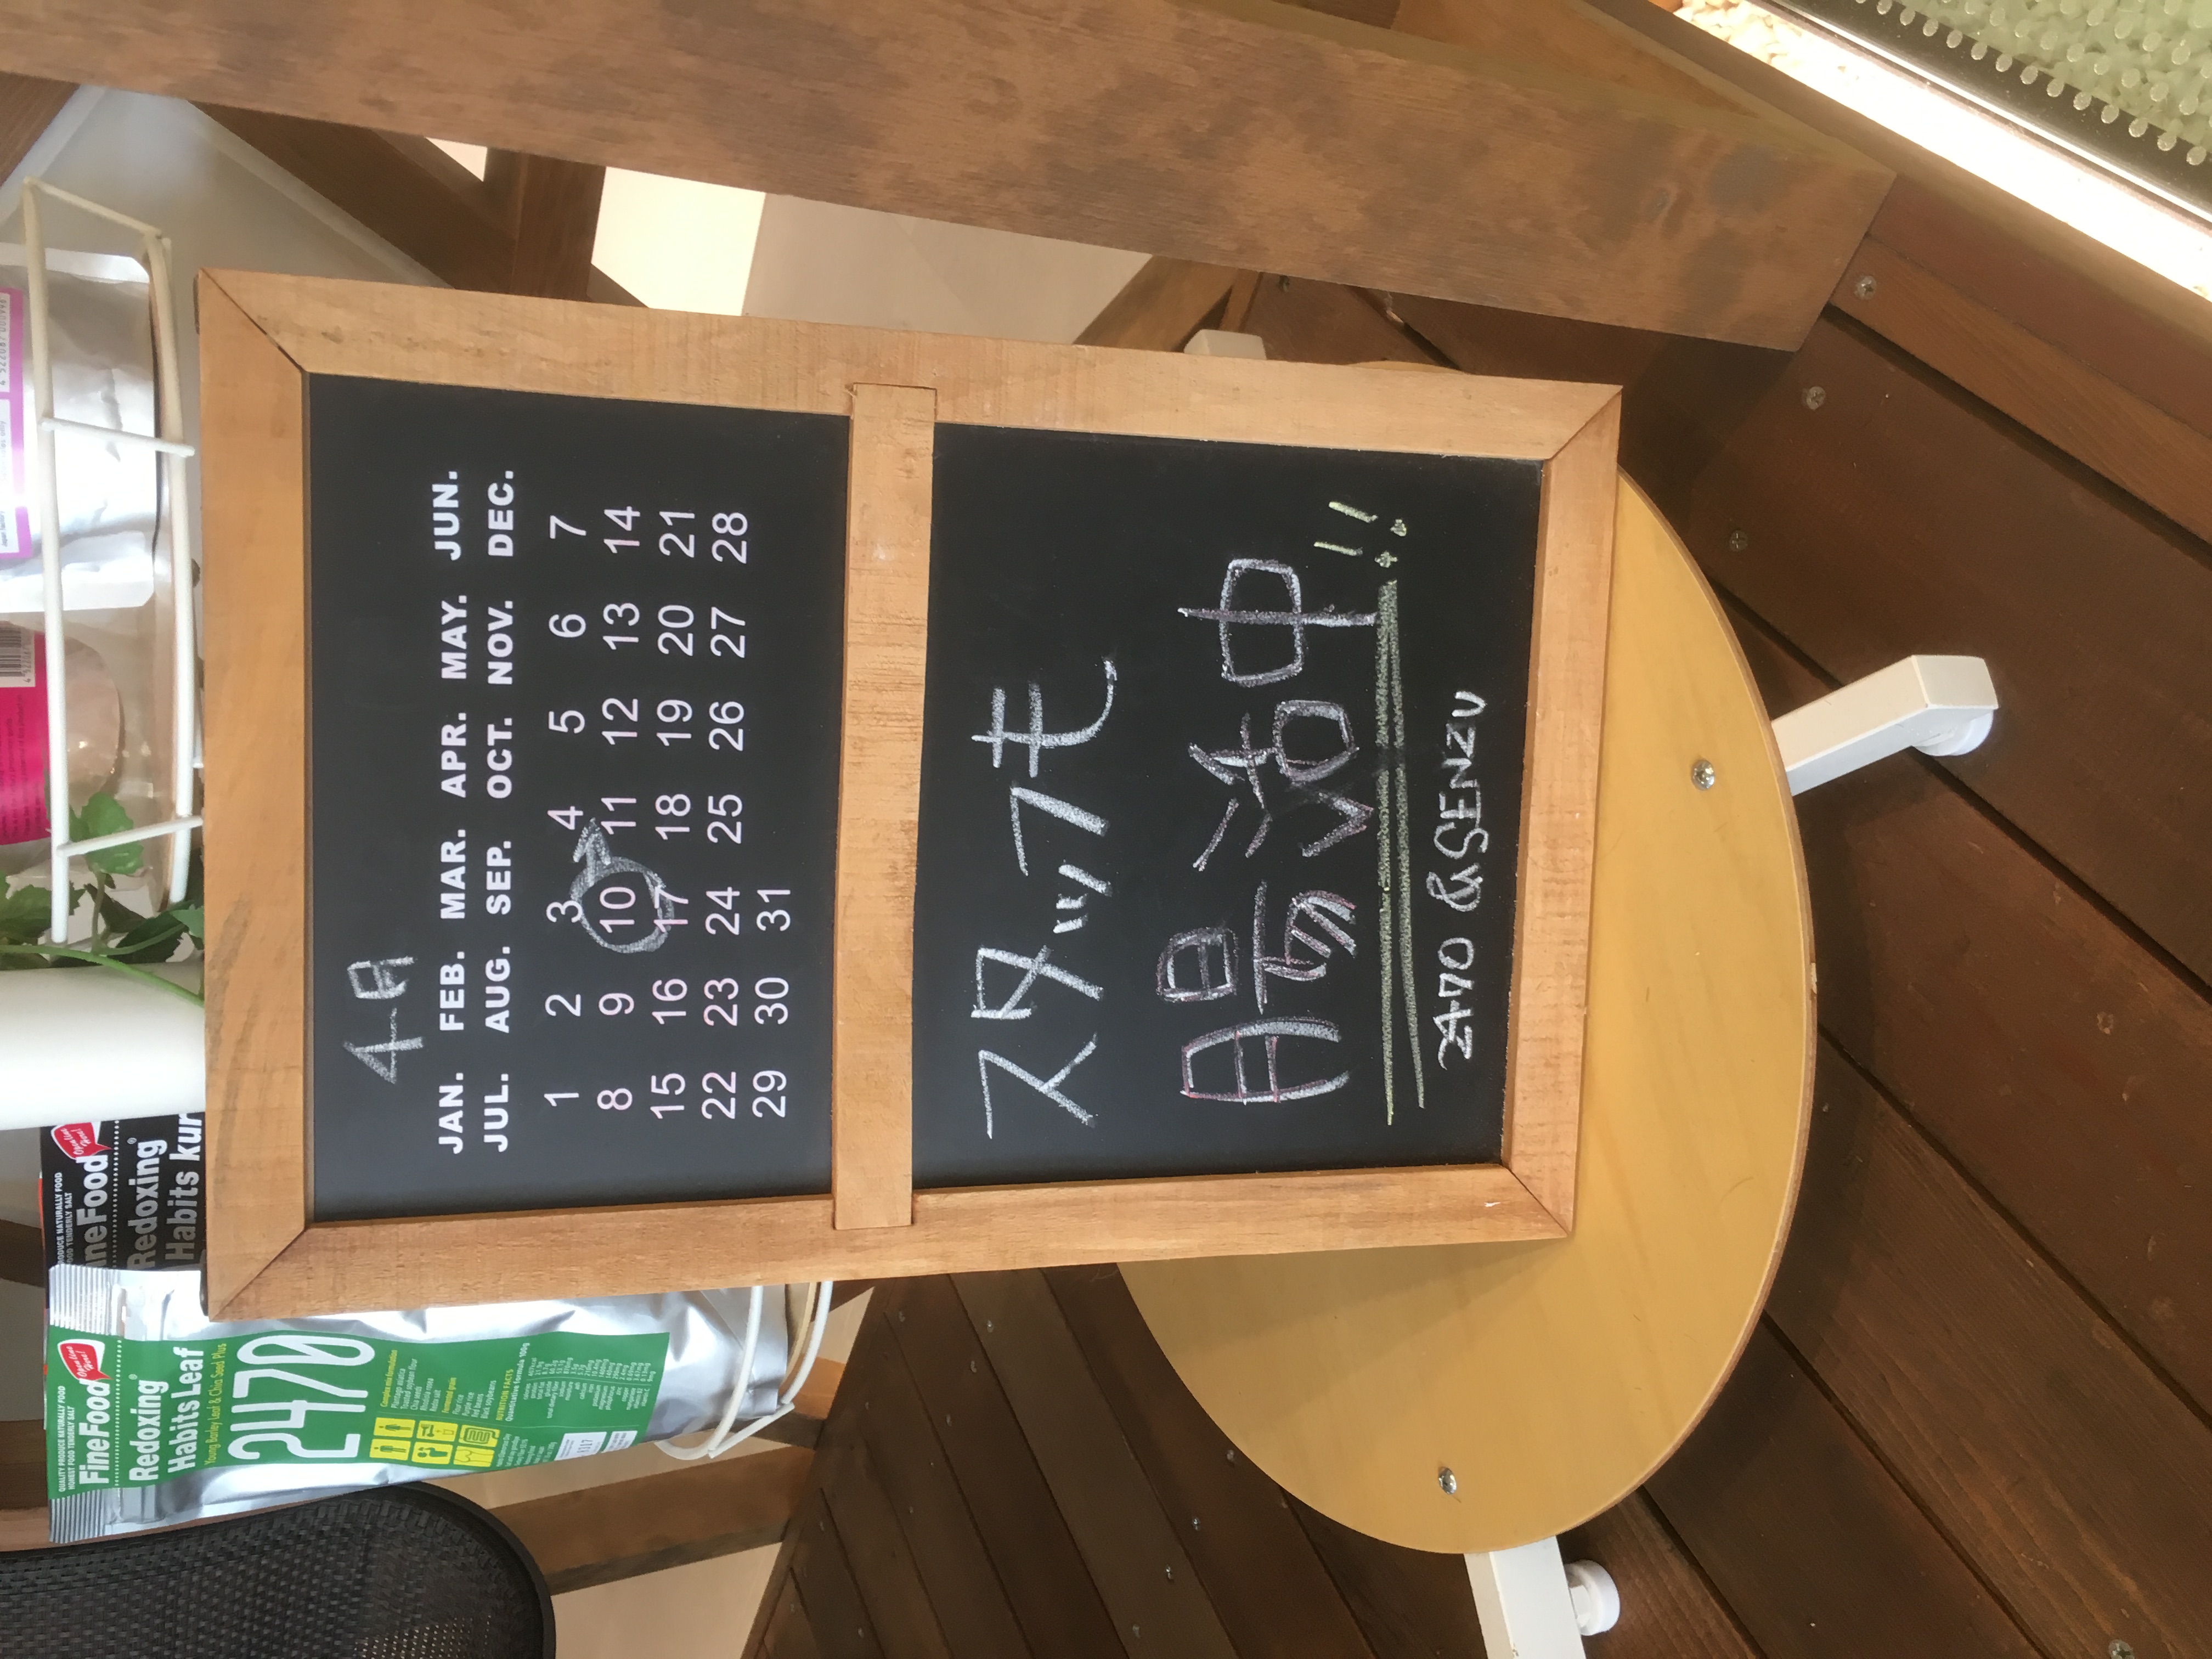 4月
JAN. FEB. MAR. APR. MAY. JUN.
JUL. AUG. SEP. OCT. NOV. DEC.
1 2 3 4 5 6 7
8 9 10 11 12 13 14
15 16 17 18 19 20 21
22 23 24 25 26 27 28
29 30 31
スタッフも
腸活中!!
2470 &SENZU
FineFood
Redoxing
Habits kur
QUALITY PRODUCE NATURALLY FOOD
HIGHEST FOOD TENDERLY SALT
FineFood
Redoxing®
Habits Leaf
Young Barley Leaf & Chia Seed Plus
2470
NUTRITION FACTS